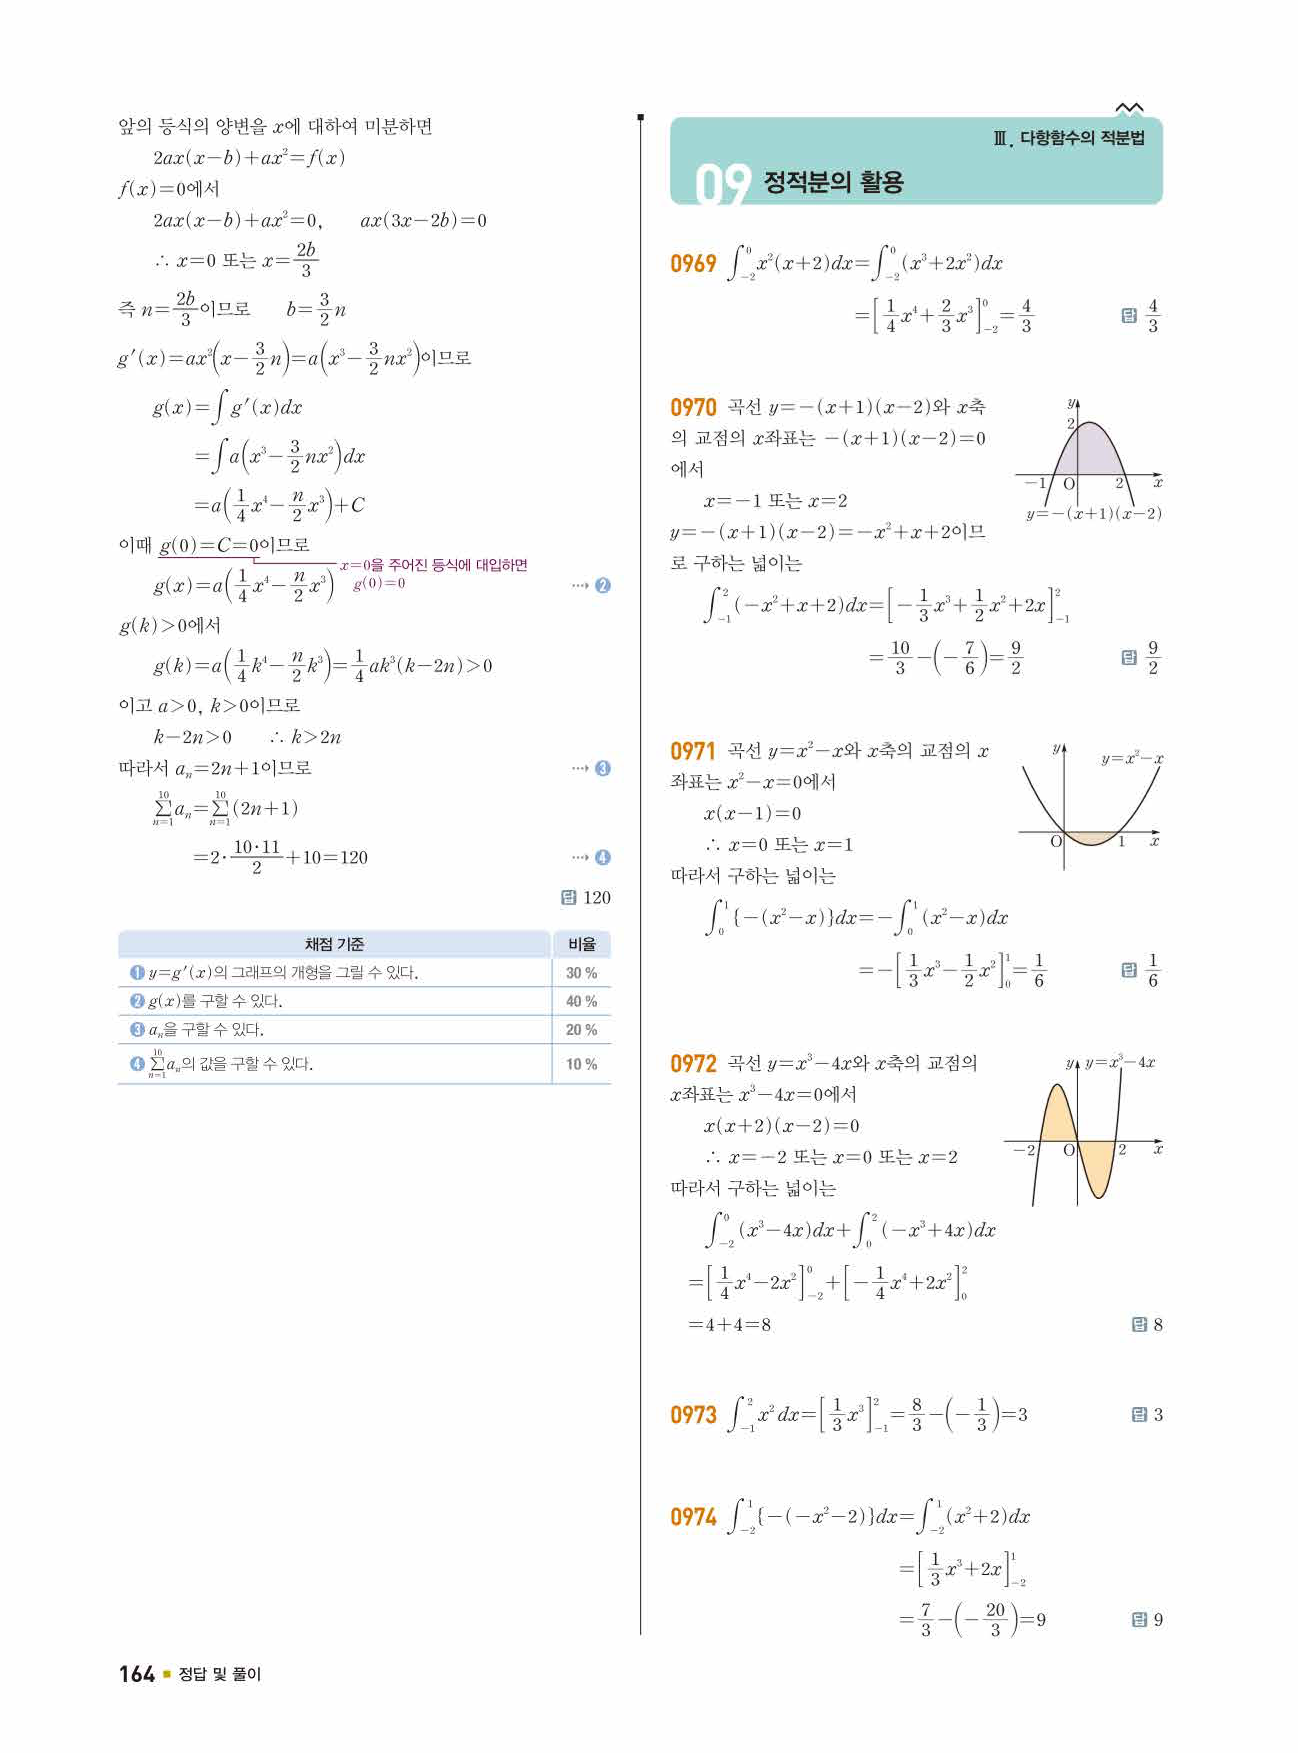 앞의 등식의 양변을 x에 대하여 미분하면
2ax(x-b)+ax²=f(x)
f(x)=0에서
2ax(x-b)+ax²=0, ax(3x-2b)=0
∴ x=0 또는 x=2b/3
즉 n=2b/3이므로 b=3/2 n
g′(x)=ax²(x-3/2 n)=a(x³-3/2 nx²)이므로
g(x)=∫g′(x)dx
=∫a(x³-3/2 nx²)dx
=a(1/4 x⁴-n/2 x³)+C
이때 g(0)=C=0이므로
x=0을 주어진 등식에 대입하면
g(0)=0
g(x)=a(1/4 x⁴-n/2 x³) ···→ ❷
g(k)>0에서
g(k)=a(1/4 k⁴-n/2 k³)=1/4 ak³(k-2n)>0
이고 a>0, k>0이므로
k-2n>0 ∴ k>2n
따라서 aₙ=2n+1이므로 ···→ ❸
∑_{n=1}^{10} aₙ=∑_{n=1}^{10} (2n+1)
=2·10·11/2+10=120 ···→ ❹
답 120
채점 기준 비율
❶ y=g′(x)의 그래프의 개형을 그릴 수 있다. 30 %
❷ g(x)를 구할 수 있다. 40 %
❸ aₙ을 구할 수 있다. 20 %
❹ ∑_{n=1}^{10} aₙ의 값을 구할 수 있다. 10 %
Ⅲ. 다항함수의 적분법
09 정적분의 활용
0969 ∫_{-2}^{0} x²(x+2)dx=∫_{-2}^{0} (x³+2x²)dx
=[1/4 x⁴+2/3 x³]_{-2}^{0}=4/3 답 4/3
0970 곡선 y=-(x+1)(x-2)와 x축
의 교점의 x좌표는 -(x+1)(x-2)=0
에서
x=-1 또는 x=2
y=-(x+1)(x-2)=-x²+x+2이므
로 구하는 넓이는
y
2
-1 O 2 x
y=-(x+1)(x-2)
∫_{-1}^{2} (-x²+x+2)dx=[-1/3 x³+1/2 x²+2x]_{-1}^{2}
=10/3-(-7/6)=9/2 답 9/2
0971 곡선 y=x²-x와 x축의 교점의 x
좌표는 x²-x=0에서
x(x-1)=0
∴ x=0 또는 x=1
따라서 구하는 넓이는
y
y=x²-x
O 1 x
∫_{0}^{1} {-(x²-x)}dx=-∫_{0}^{1} (x²-x)dx
=-[1/3 x³-1/2 x²]_{0}^{1}=1/6 답 1/6
0972 곡선 y=x³-4x와 x축의 교점의
x좌표는 x³-4x=0에서
x(x+2)(x-2)=0
∴ x=-2 또는 x=0 또는 x=2
따라서 구하는 넓이는
y y=x³-4x
-2 O 2 x
∫_{-2}^{0} (x³-4x)dx+∫_{0}^{2} (-x³+4x)dx
=[1/4 x⁴-2x²]_{-2}^{0}+[-1/4 x⁴+2x²]_{0}^{2}
=4+4=8 답 8
0973 ∫_{-1}^{2} x² dx=[1/3 x³]_{-1}^{2}=8/3-(-1/3)=3 답 3
0974 ∫_{-2}^{1} {-(-x²-2)}dx=∫_{-2}^{1} (x²+2)dx
=[1/3 x³+2x]_{-2}^{1}
=7/3-(-20/3)=9 답 9
164 ▪ 정답 및 풀이